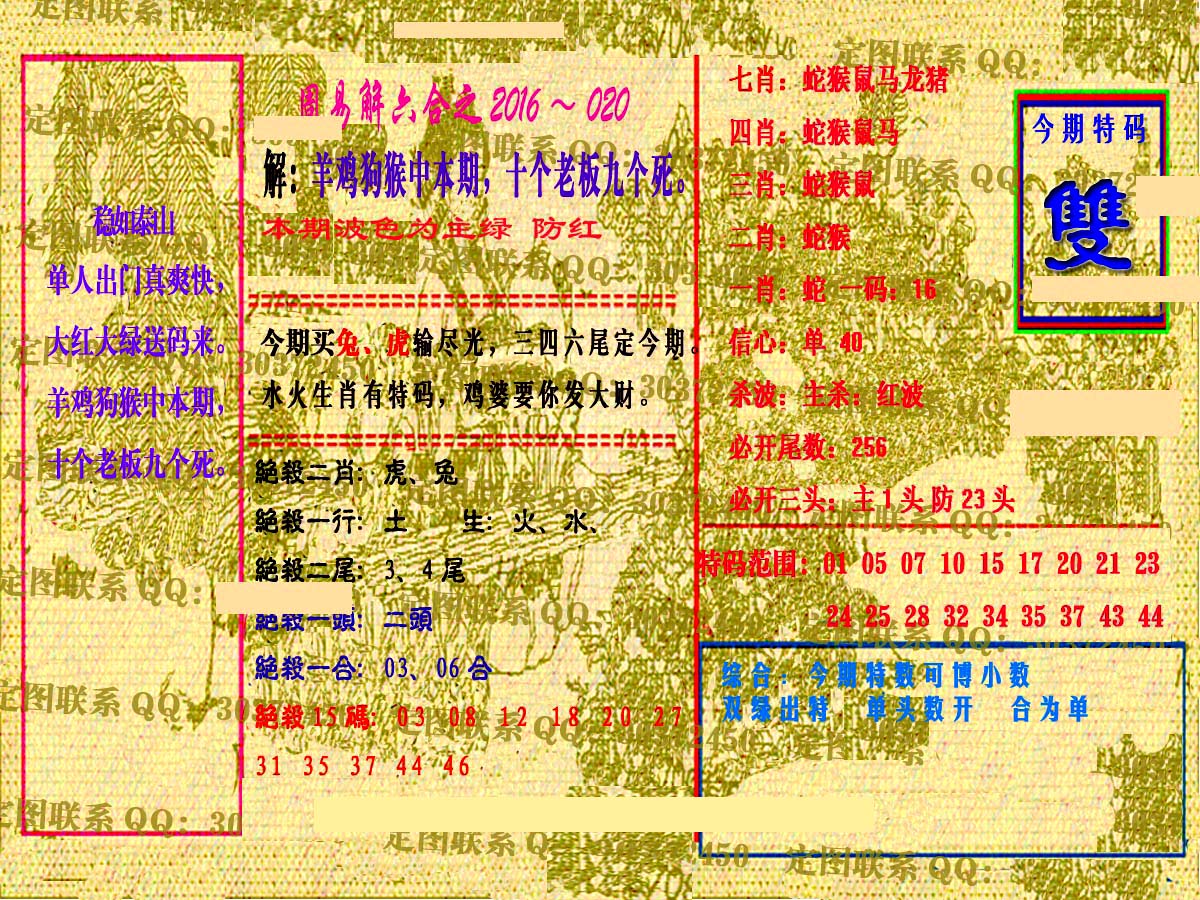 稳如泰山
单人出门真爽快，
大红大绿送码来。
羊鸡狗猴中本期，
十个老板九个死。
易解六合之 2016 ～ 020
解：羊鸡狗猴中本期，十个老板九个死。
本期波色为主绿 防红
今期买兔、虎输尽光，三四六尾定今期。
水火生肖有特码，鸡婆要你发大财。
絕殺二肖：虎、兔
絕殺一行：土 生：火、水、
絕殺二尾：3、4 尾
絕殺一頭：二頭
絕殺一合：03、06 合
絕殺 15 碼：03 08 12 18 20 27
31 35 37 44 46
七肖：蛇猴鼠马龙猪
四肖：蛇猴鼠马
三肖：蛇猴鼠
二肖：蛇猴
一肖：蛇 一码：16
信心：单 40
杀波：主杀：红波
必开尾数：256
必开三头：主 1 头 防 23 头
今期特码
雙
特码范围：01 05 07 10 15 17 20 21 23
24 25 28 32 34 35 37 43 44
综合：今期特数可博小数
双绿出特，单头数开 合为单
定图联系 QQ：